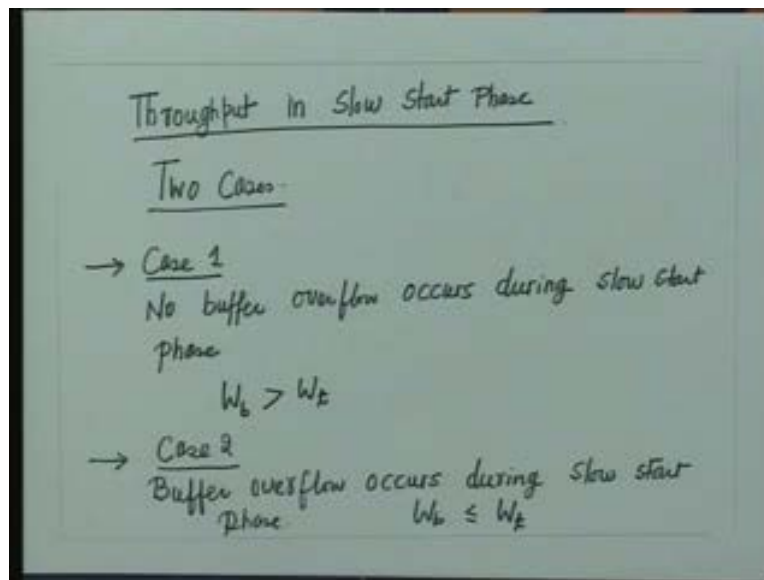 Throughput in Slow Start Phase
Two Cases
→ Case 1
No buffer overflow occurs during slow start
phase
W_b > W_t
→ Case 2
Buffer overflow occurs during slow start
phase W_b ≤ W_t